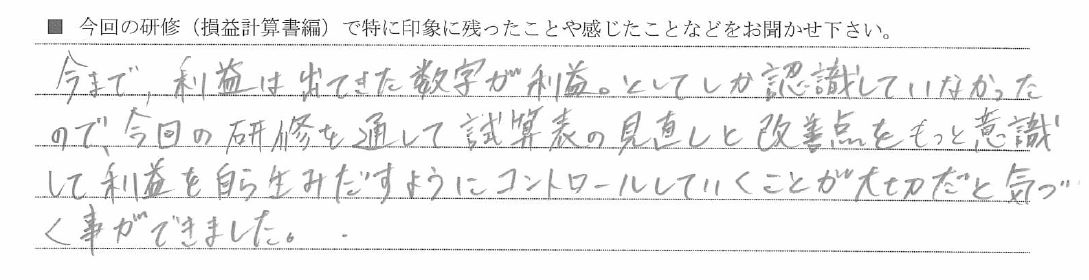 ■ 今回の研修（損益計算書編）で特に印象に残ったことや感じたことなどをお聞かせ下さい。
今まで、利益は出てきた数字が利益。としてしか認識していなかった
ので、今回の研修を通して試算表の見直しと改善点をもっと意識
して利益を自ら生みだすようにコントロールしていくことが大切だと気づ
く事ができました。